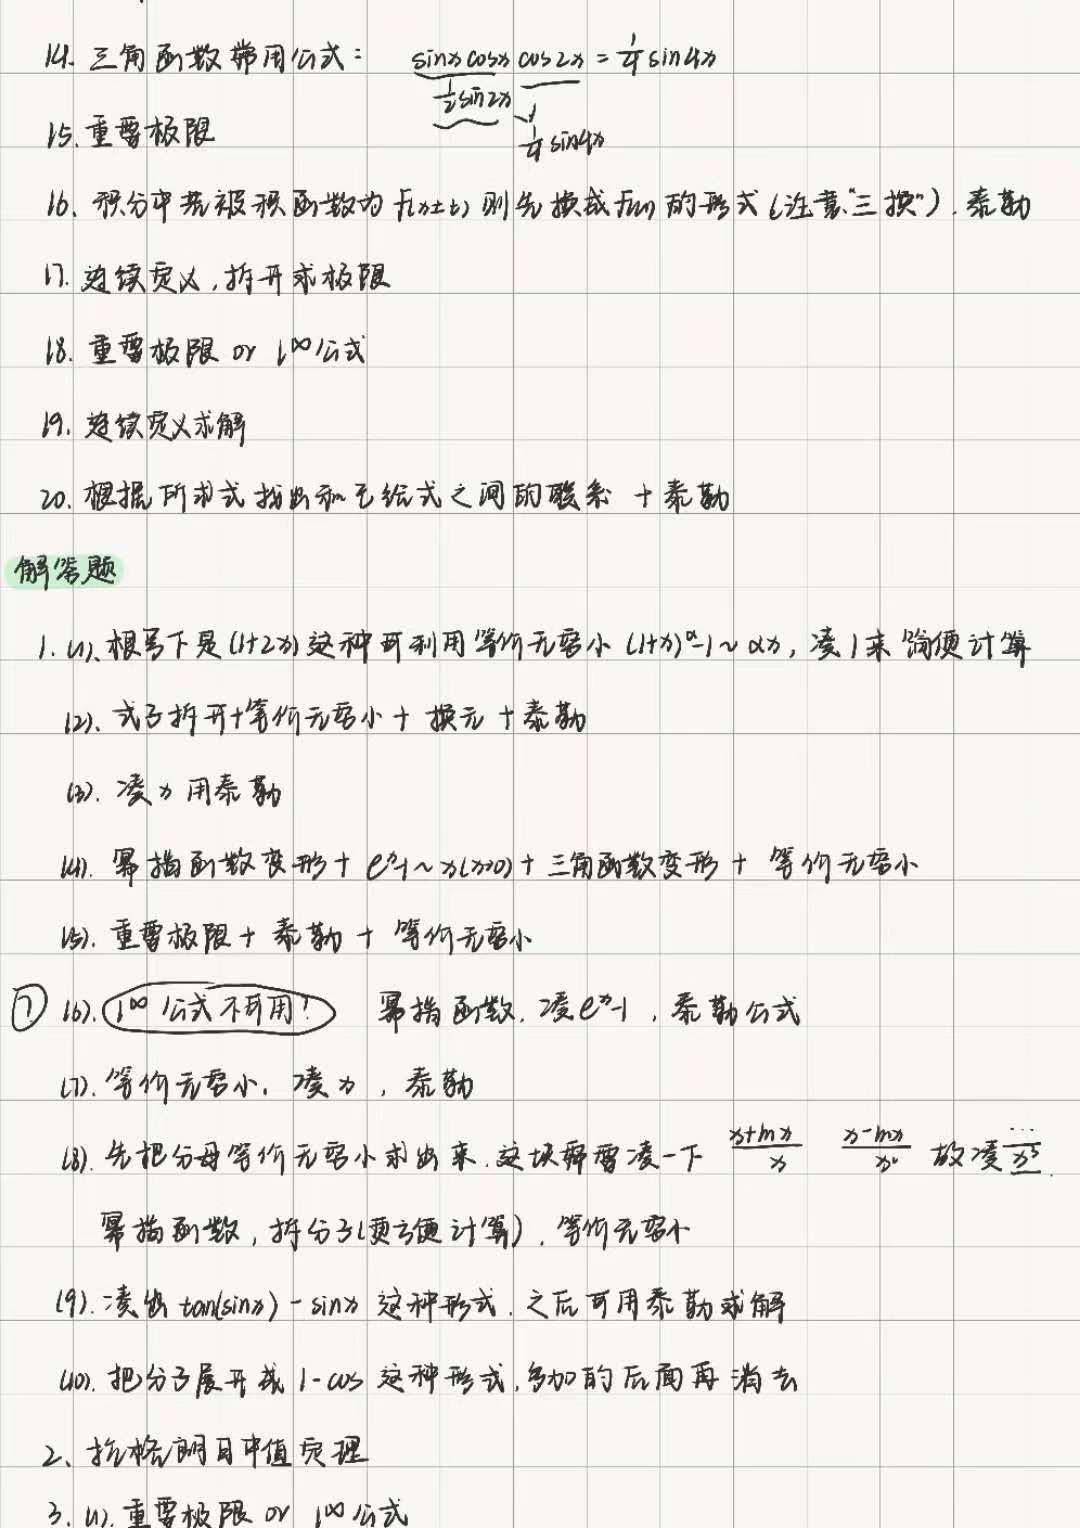 14. 三角函数常用公式： sinx cosx cos2x = 1/4 sin4x
1/2 sin2x
1/4 sin4x
15. 重要极限
16. 积分中若被积函数为 f(x±t) 则先换成 f(u) 的形式 (注意“三换”). 泰勒
17. 连续定义, 拆开求极限
18. 重要极限 or 1^∞ 公式
19. 连续定义求解
20. 根据所求式找出和已给式之间的联系 + 泰勒
解答题
1. (1). 根号下是 (1+2x) 这种可利用等价无穷小 (1+x)^α-1 ~ αx, 凑1来简便计算
(2). 式子拆开+等价无穷小 + 换元 + 泰勒
(3). 凑 x 用泰勒
(4). 幂指函数变形 + e^x-1 ~ x (x→0) + 三角函数变形 + 等价无穷小
(5). 重要极限 + 泰勒 + 等价无穷小
① (6). 1^∞ 公式不可用! 幂指函数. 凑 e^x-1, 泰勒公式
(7). 等价无穷小. 凑 x, 泰勒
(8). 先把分母等价无穷小求出来. 这块需要凑一下 x+lnx/x x-lnx/x² 故凑 .../x³
幂指函数, 拆分子(更方便计算), 等价无穷小
(9). 凑出 tan(sinx) - sinx 这种形式. 之后可用泰勒求解
(10). 把分子展开成 1-cos 这种形式, 多加的后面再消去
2. 拉格朗日中值定理
3. (1). 重要极限 or 1^∞ 公式